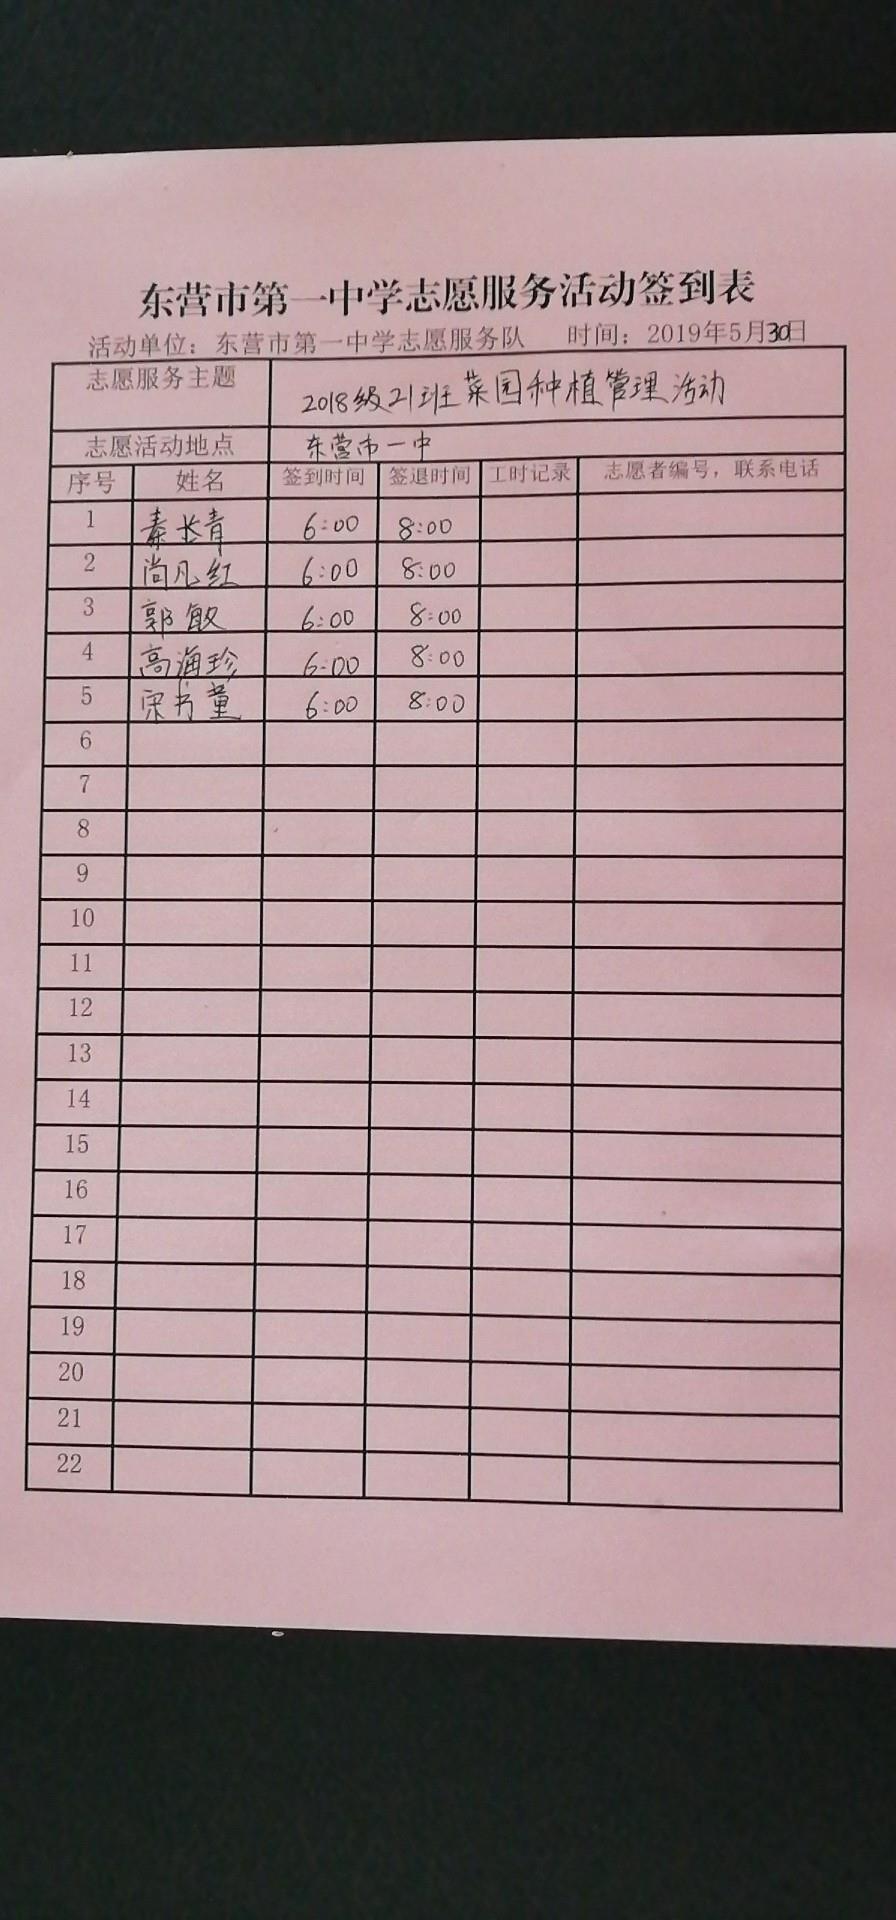 东营市第一中学志愿服务活动签到表
活动单位：东营市第一中学志愿服务队 时间：2019年5月30日
志愿服务主题 2018级21班菜园种植管理活动
志愿活动地点 东营市一中
序号 姓名 签到时间 签退时间 工时记录 志愿者编号，联系电话
1 秦长青 6:00 8:00
2 尚凡红 6:00 8:00
3 郭敏 6:00 8:00
4 高海珍 6:00 8:00
5 宋书童 6:00 8:00
6
7
8
9
10
11
12
13
14
15
16
17
18
19
20
21
22